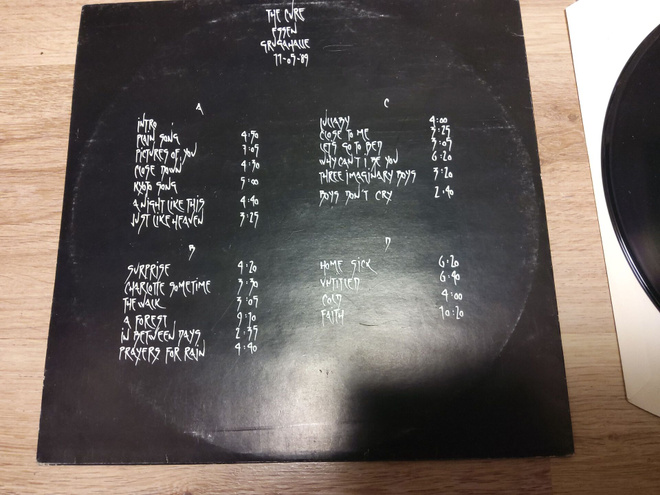 THE CURE
ESSEN
GRUGAHALLE
11-05-89
A
INTRO
PLAIN SONG 4:50
PICTURES OF YOU 7:05
CLOSE DOWN 4:30
KYOTO SONG 5:00
A NIGHT LIKE THIS 4:40
JUST LIKE HEAVEN 3:25
B
SURPRISE 4:20
CHARLOTTE SOMETIME 3:50
THE WALK 3:05
A FOREST 9:10
IN BETWEEN DAYS 2:35
PRAYERS FOR RAIN 4:40
C
LULLABY 4:00
CLOSE TO ME 3:25
LETS GO TO BED 3:05
WHY CAN'T I BE YOU 6:20
THREE IMAGINARY BOYS 3:20
BOYS DON'T CRY 2:40
D
HOME SICK 6:20
UNTITLED 6:40
COLD 4:00
FAITH 10:20